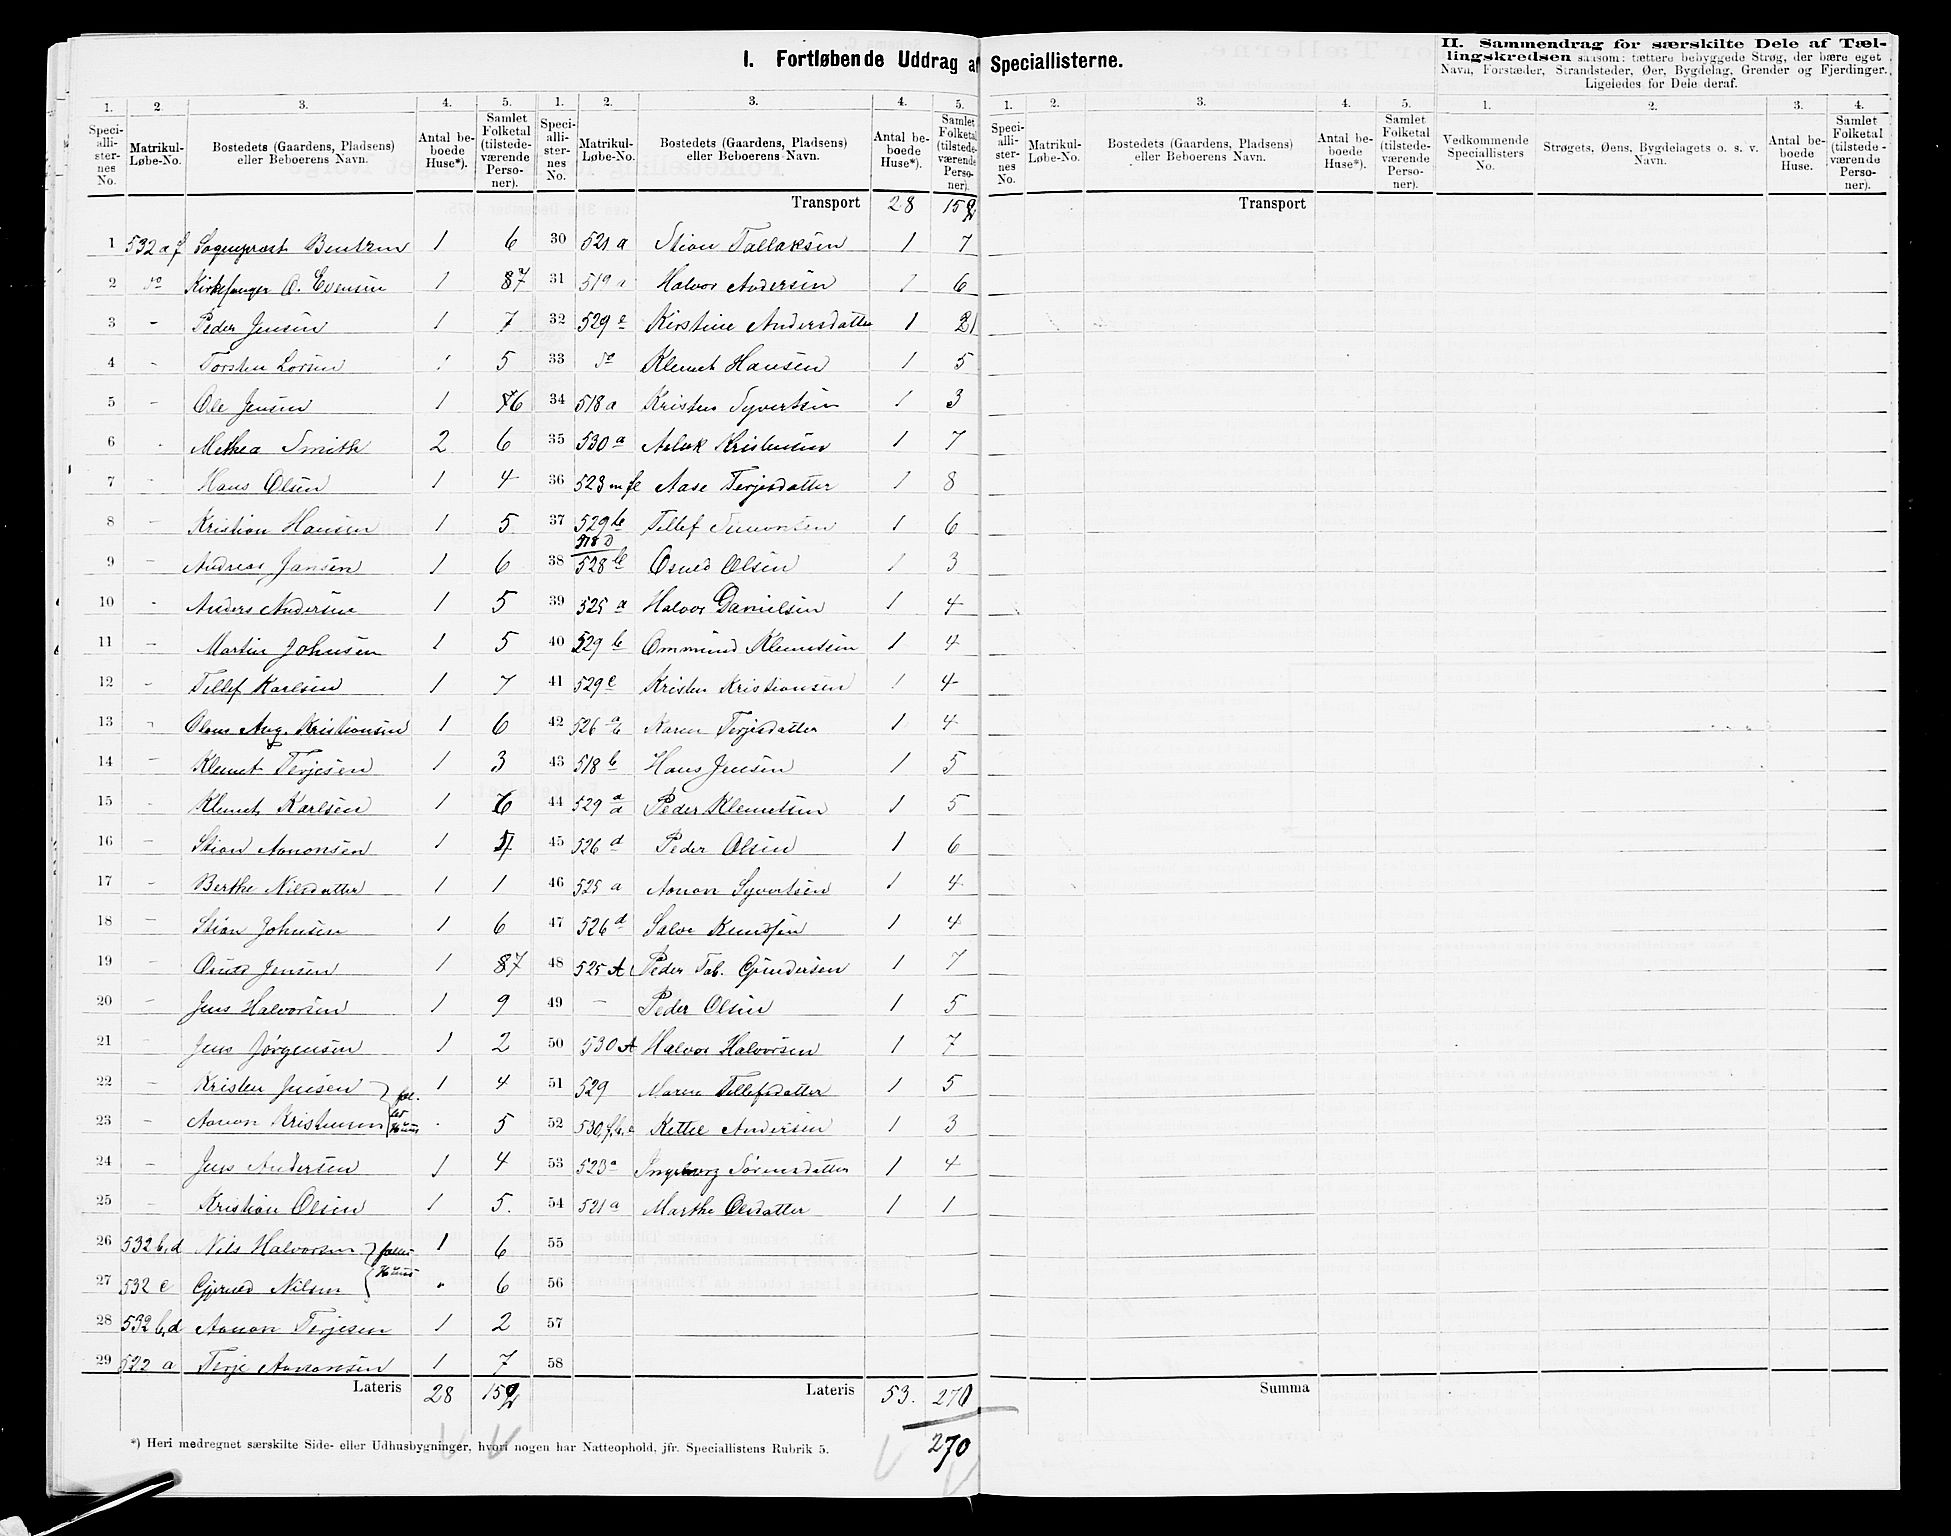 I. Fortløbende Uddrag af Speciallisterne.
II. Sammendrag for særskilte Dele af Tæl-
lingskredsen saasom: tættere bebyggede Strøg, der bære eget
Navn, Forstæder, Strandsteder, Øer, Bygdelag, Grender og Fjerdinger.
Ligeledes for Dele deraf.
1. 2. 3. 4. 5. 1. 2. 3. 4. 5. 1. 2. 3. 4. 5. 1. 2. 3. 4.
Speci-alli-ster-nes No. Matrikul-Løbe-No. Bostedets (Gaardens, Pladsens) eller Beboerens Navn. Antal be-boede Huse*). Samlet Folketal (tilstede-værende Perso-ner).
Speci-alli-ster-nes No. Matrikul-Løbe-No. Bostedets (Gaardens, Pladsens) eller Beboerens Navn. Antal be-boede Huse*). Samlet Folketal (tilstede-værende Perso-ner).
Speci-alli-ster-nes No. Matrikul-Løbe-No. Bostedets (Gaardens, Pladsens) eller Beboerens Navn. Antal be-boede Huse*). Samlet Folketal (tilstede-værende Perso-ner).
Vedkommende Speciallisters No. Strøgets, Øens, Bygdelagets o. s. v. Navn. Antal be-boede Huse. Samlet Folketal (tilstede-værende Perso-ner).
Transport 28 Transport
1 532 a f Sogneprest Bentzen 1 6
2 do Kirkesanger O. Evensen 1 7
3 - Peder Jensen 1 7
4 - Torsten Larsen 1 5
5 - Ole Jensen 1 6
6 - Methea Smith 2 6
7 - Hans Olsen 1 4
8 - Kristian Hansen 1 5
9 - Andreas Jansen 1 6
10 - Anders Andersen 1 5
11 - Martin Johnsen 1 5
12 - Tellef Karlsen 1 7
13 - Olaus Aug. Kristiansen 1 6
14 - Klemet Terjesen 1 3
15 - Klemet Karlsen 1 6
16 - Stian Aanonsen 1
17 - Berthe Nilsdatter 1 1
18 - Stian Johnsen 1 6
19 - Osuld Jensen 1 7
20 - Jens Halvorsen 1 9
21 - Jens Jørgensen 1 2
22 - Kristen Jensen 1 4
23 - Aanon Kristensen Huus 5
24 - Jens Andersen 1 4
25 - Kristian Olsen 1 5.
26 532 b,d Nils Halvorsen 1 6
27 532 e Gjeruld Nilsen Huus " 6
28 532 b,d Aanon Terjesen 1 2
29 522 a Terje Aanonsen 1 7
Lateris 28
30 521 a Stian Tallaksen 1 7
31 519 a Halvor Andersen 1 6
32 529 e Kirstine Andersdatter 1
33 do Klemet Hansen 1 5
34 518 a Kristen Syvertsen 1 3
35 530 a Aslak Kristensen 1 7
36 523 Aase Terjesdatter 1 8
37 529 be Tellef Simonsen 1 6
518 D
38 528 Osuld Olsen 1 3
39 525 a Halvor Danielsen 1 4
40 529 b Ommund Klemetsen 1 4
41 529 e Kristen Kristiansen 1 4
42 526 a b Karen Terjesdatter 1 4
43 518 b Hans Jensen 1 5
44 529 a a Peder Klemetsen 1 5
45 526 d Peder Olsen 1 6
46 525 a Aanon Syvertsen 1 4
47 526 d Salve Knudsen 1 4
48 525 A Peder Tob. Gundersen 1 7
49 - Peder Olsen 1 5
50 530 A Halvor Halvorsen 1 7
51 529 Maren Tellefsdatter 1 5
52 530, Kettel Andersen 1 3
53 523 a Ingeborg Sørensdatter 1 4
54 521 a Marthe Olsdatter 1 1
55
56
57
58
Lateris 53. 270
270
Summa
*) Heri medregnet særskilte Side- eller Udhusbygninger, hvori nogen har Natteophold, jfr. Speciallistens Rubrik 5.